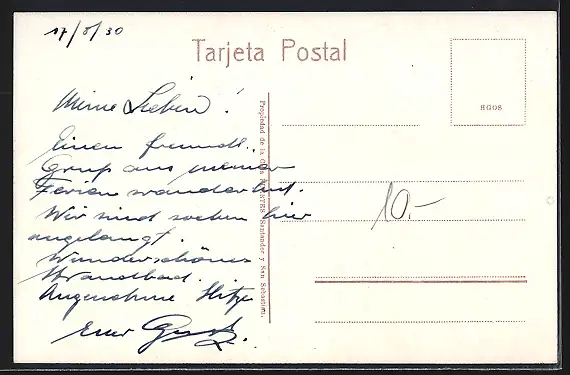 17/8/30
Tarjeta Postal
HGOS
Meine Lieben!
Einen freundl.
Gruß aus meiner
Ferienwanderlust.
Wir sind soeben hier
angelangt.
Wunderschönes
Strandbad.
Angenehme Hitze
Euer
Propiedad de la Casa Santander y San Sebastian.
10.-